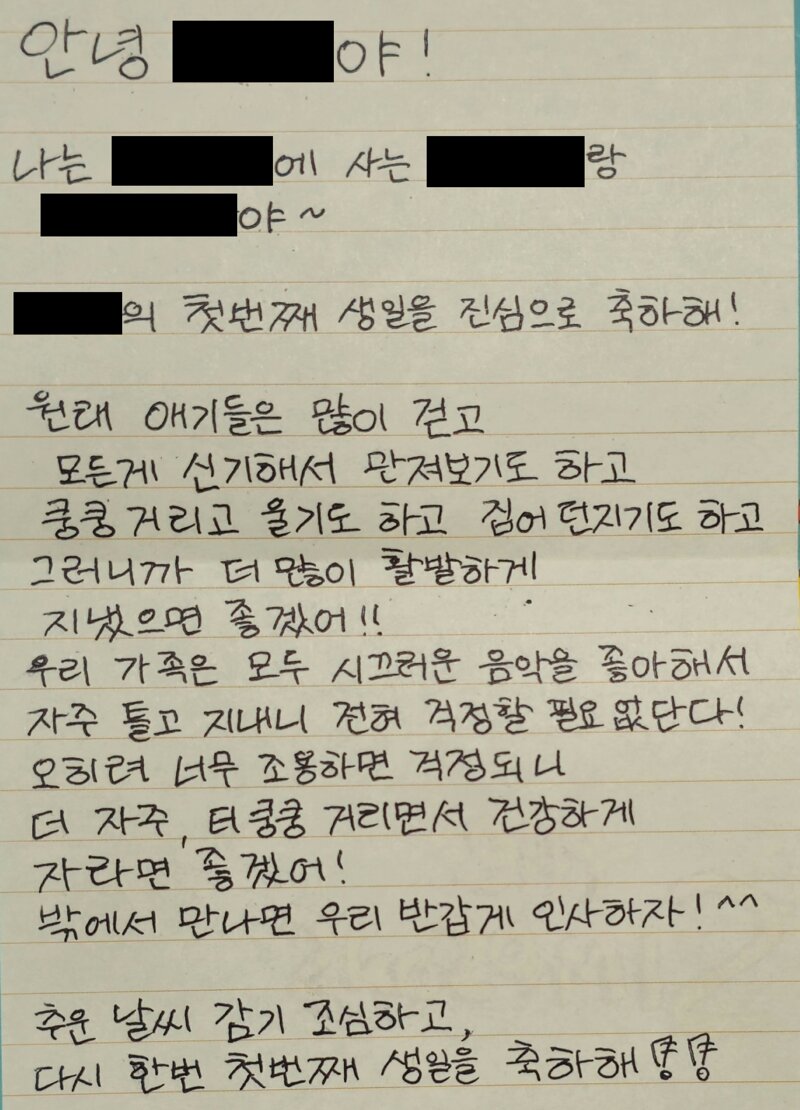 안녕 야!
나는 에 사는 랑
야~
의 첫번째 생일을 진심으로 축하해!
원태 애기들은 많이 걷고
모든게 신기해서 만져보기도 하고
쿵쿵거리고 울기도 하고 집어 던지기도 하고
그러니까 더 많이 활발하게
지냈으면 좋겠어!!
우리 가족은 모두 시끄러운 음악을 좋아해서
자주 틀고 지내니 전혀 걱정할 필요없단다!
오히려 너무 조용하면 걱정되니
더 자주, 터쿵쿵 거리면서 건강하게
자라면 좋겠어!
밖에서 만나면 우리 반갑게 인사하자!^^
추운 날씨 감기 조심하고,
다시 한번 첫번째 생일을 축하해